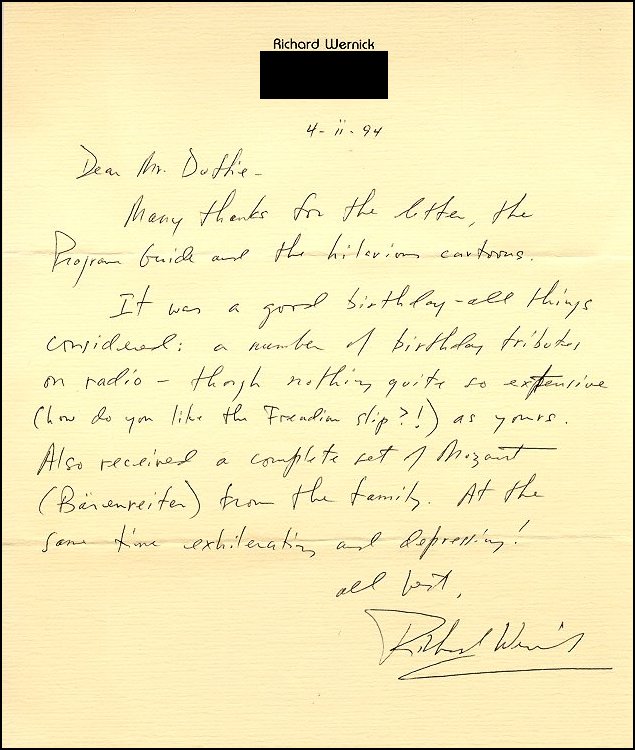 Richard Wernick
4-ii-94
Dear Mr. Duthie-
Many thanks for the letter, the
Program Guide and the hilarious cartoons.
It was a good birthday-all things
considered: a number of birthday tributes
on radio - though nothing quite so extensive
(how do you like the Freudian slip?!) as yours.
Also received a complete set of Mozart
(Bärenreiter) from the family. At the
same time exhilerating and depressing!
all best,
Richard Wernick